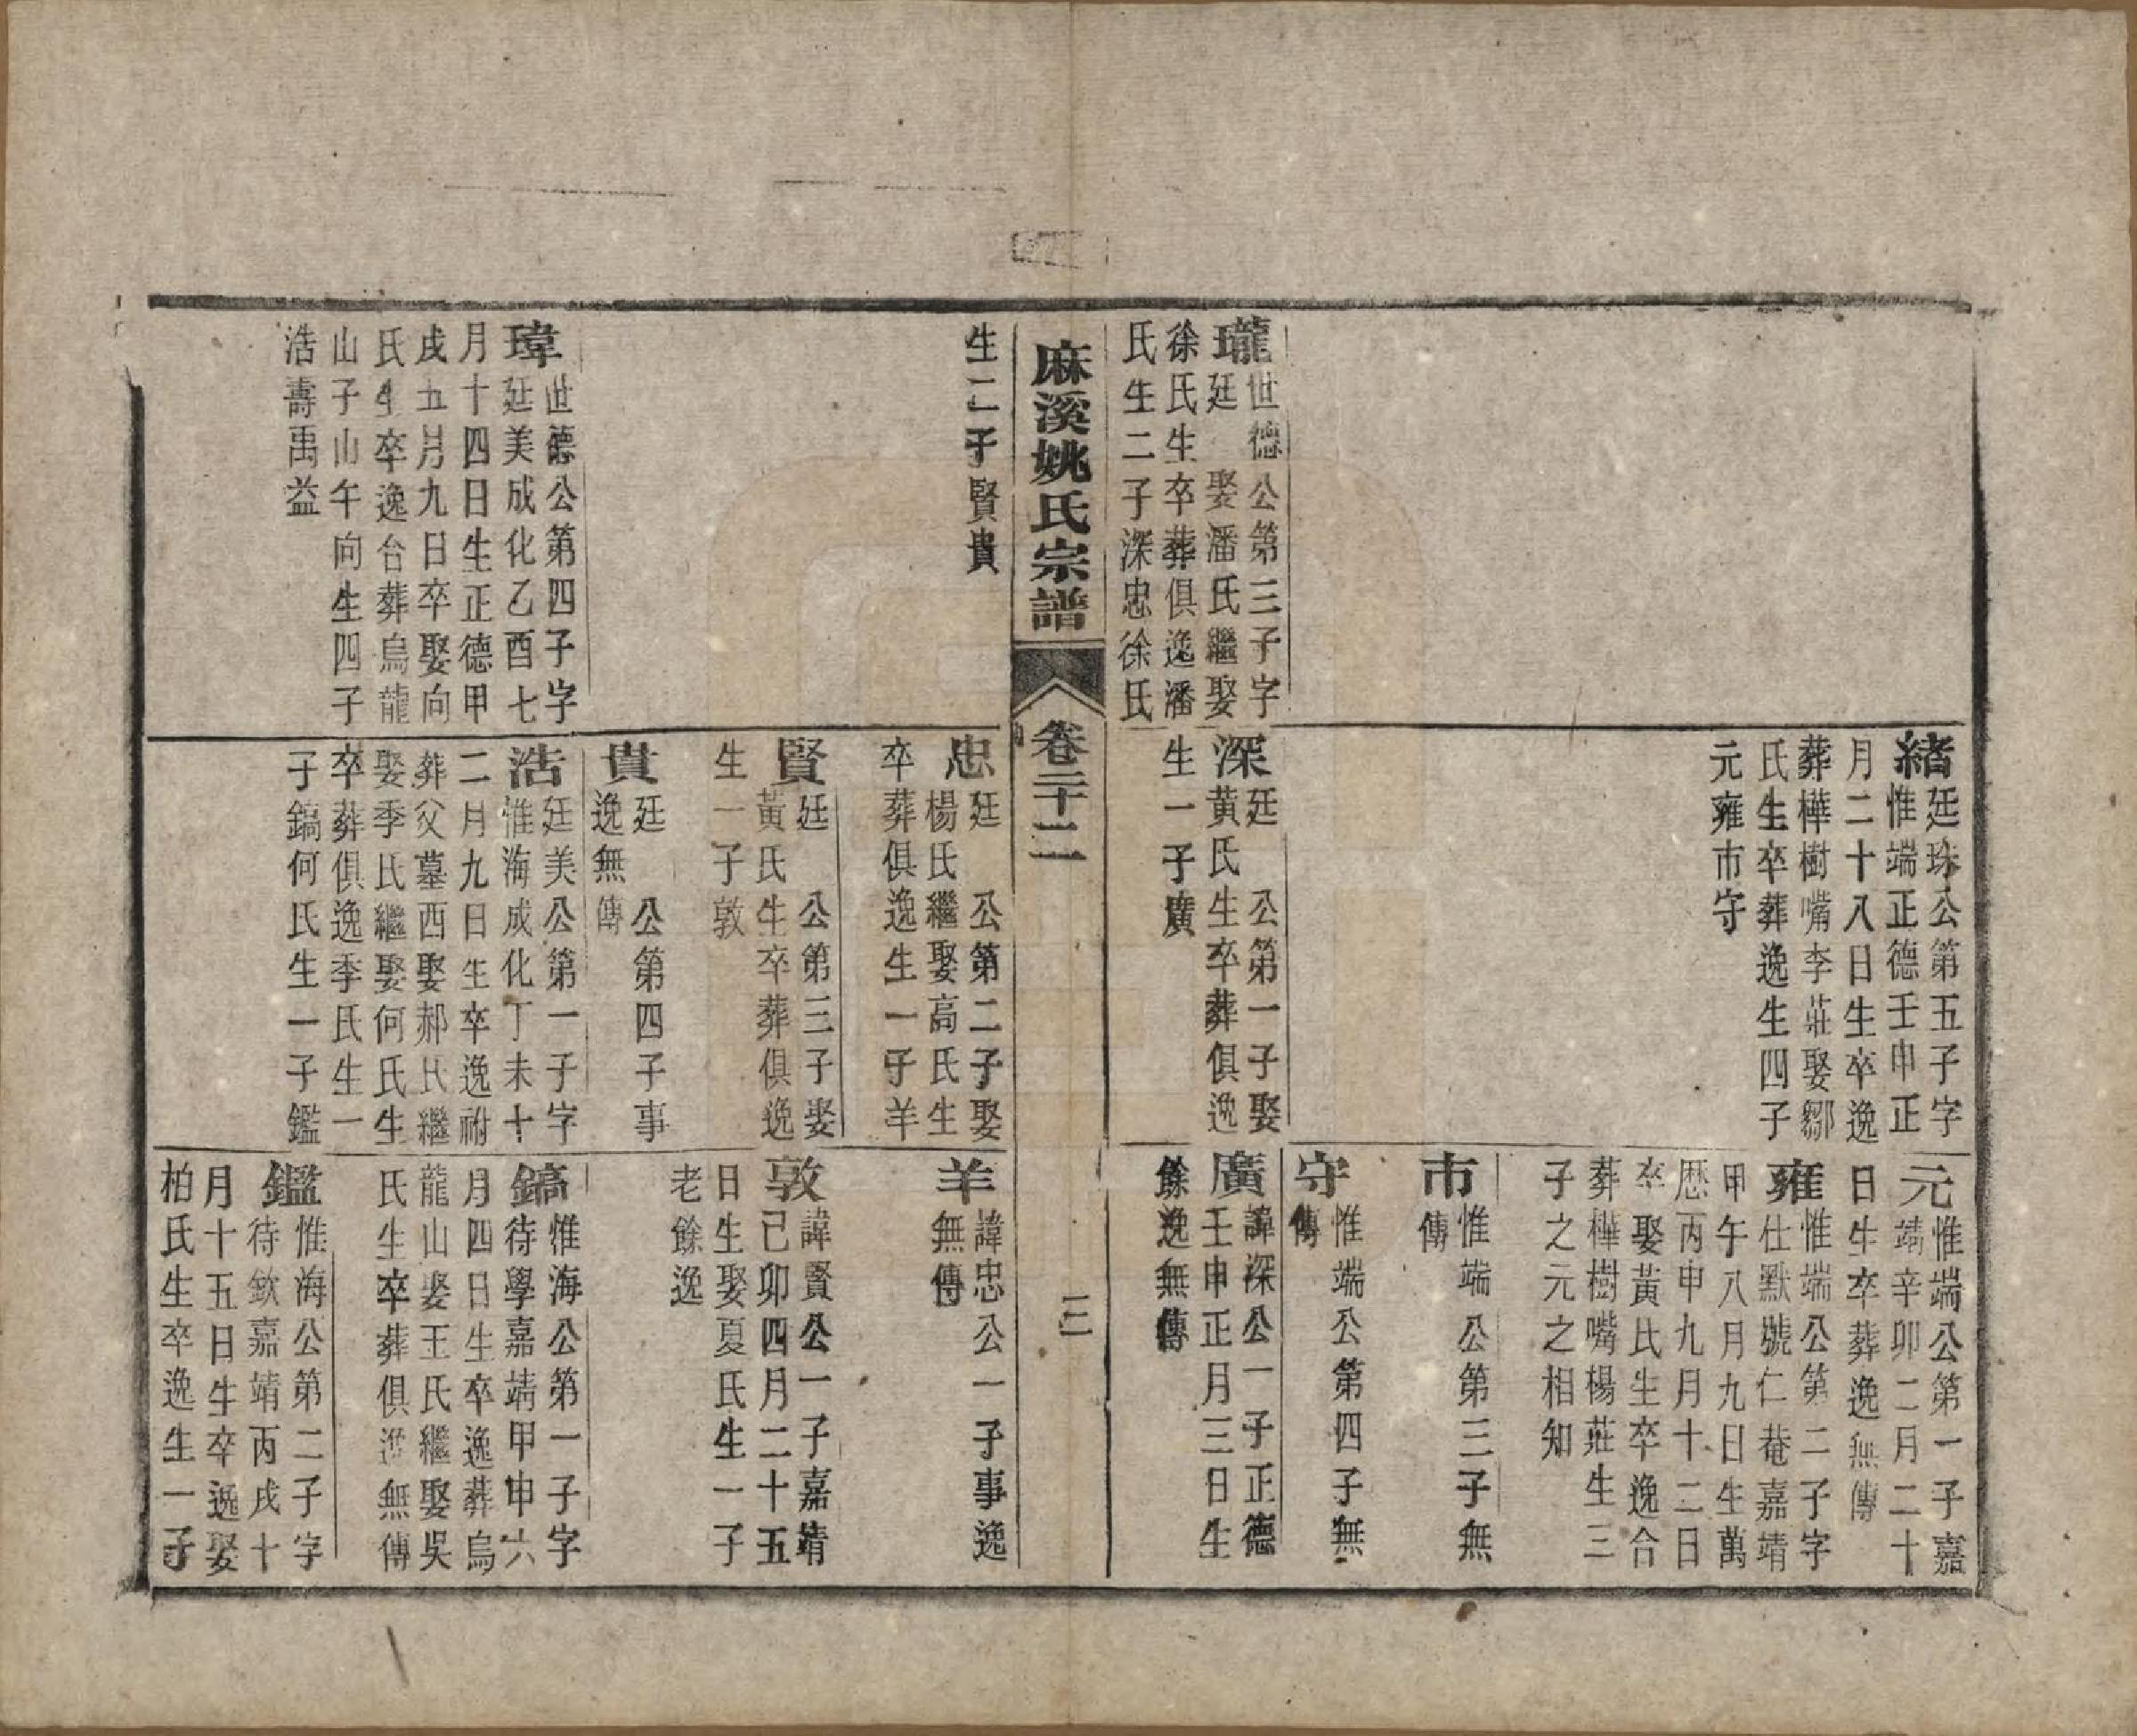 瓏
世德公第三子字
廷　娶潘氏繼娶
徐氏生卒葬俱逸潘
氏生二子深忠徐氏
緒
廷珠公第五子字
惟端正德壬申正
月二十八日生卒逸
葬樺樹嘴李莊娶鄒
氏生卒葬逸生四子
元雍市守
深
廷　公第一子娶
黃氏生卒葬俱逸
生一子廣
元
惟端公第一子嘉
靖辛卯二月二十
日生卒葬逸無傳
雍
惟端公第二子字
仕默號仁菴嘉靖
甲午八月九日生萬
歷丙申九月十二日
卒娶黃氏生卒逸合
葬樺樹嘴楊莊生三
子之元之相之知
市
惟端公第三子無
傳
守
惟端公第四子無
傳
廣
諱深公一子正德
壬申正月三日生
餘逸無傳
麻溪姚氏宗譜
卷二十二
三
生二子賢貴
瑋
世德公第四子字
廷美成化乙酉七
月十四日生正德甲
戌五月九日卒娶向
氏生卒逸合葬烏龍
山子山午向生四子
浩壽禹益
忠
廷　公第二子娶
楊氏繼娶高氏生
卒葬俱逸生一子羊
賢
廷　公第三子娶
黃氏生卒葬俱逸
生一子敦
貴
廷　公第四子事
逸無傳
浩
廷美公第一子字
惟海成化丁未十
二月九日生卒逸祔
葬父墓西娶郝氏繼
娶季氏繼娶何氏生
卒葬俱逸季氏生一
子鎬何氏生一子鑑
羊
諱忠公一子事逸
無傳
敦
諱賢公一子嘉靖
己卯四月二十五
日生娶夏氏生一子
老餘逸
鎬
惟海公第一子字
待學嘉靖甲申六
月四日生卒逸葬烏
龍山娶王氏繼娶吳
氏生卒葬俱逸無傳
鑑
惟海公第二子字
待欽嘉靖丙戌十
月十五日生卒逸娶
柏氏生卒逸生一子